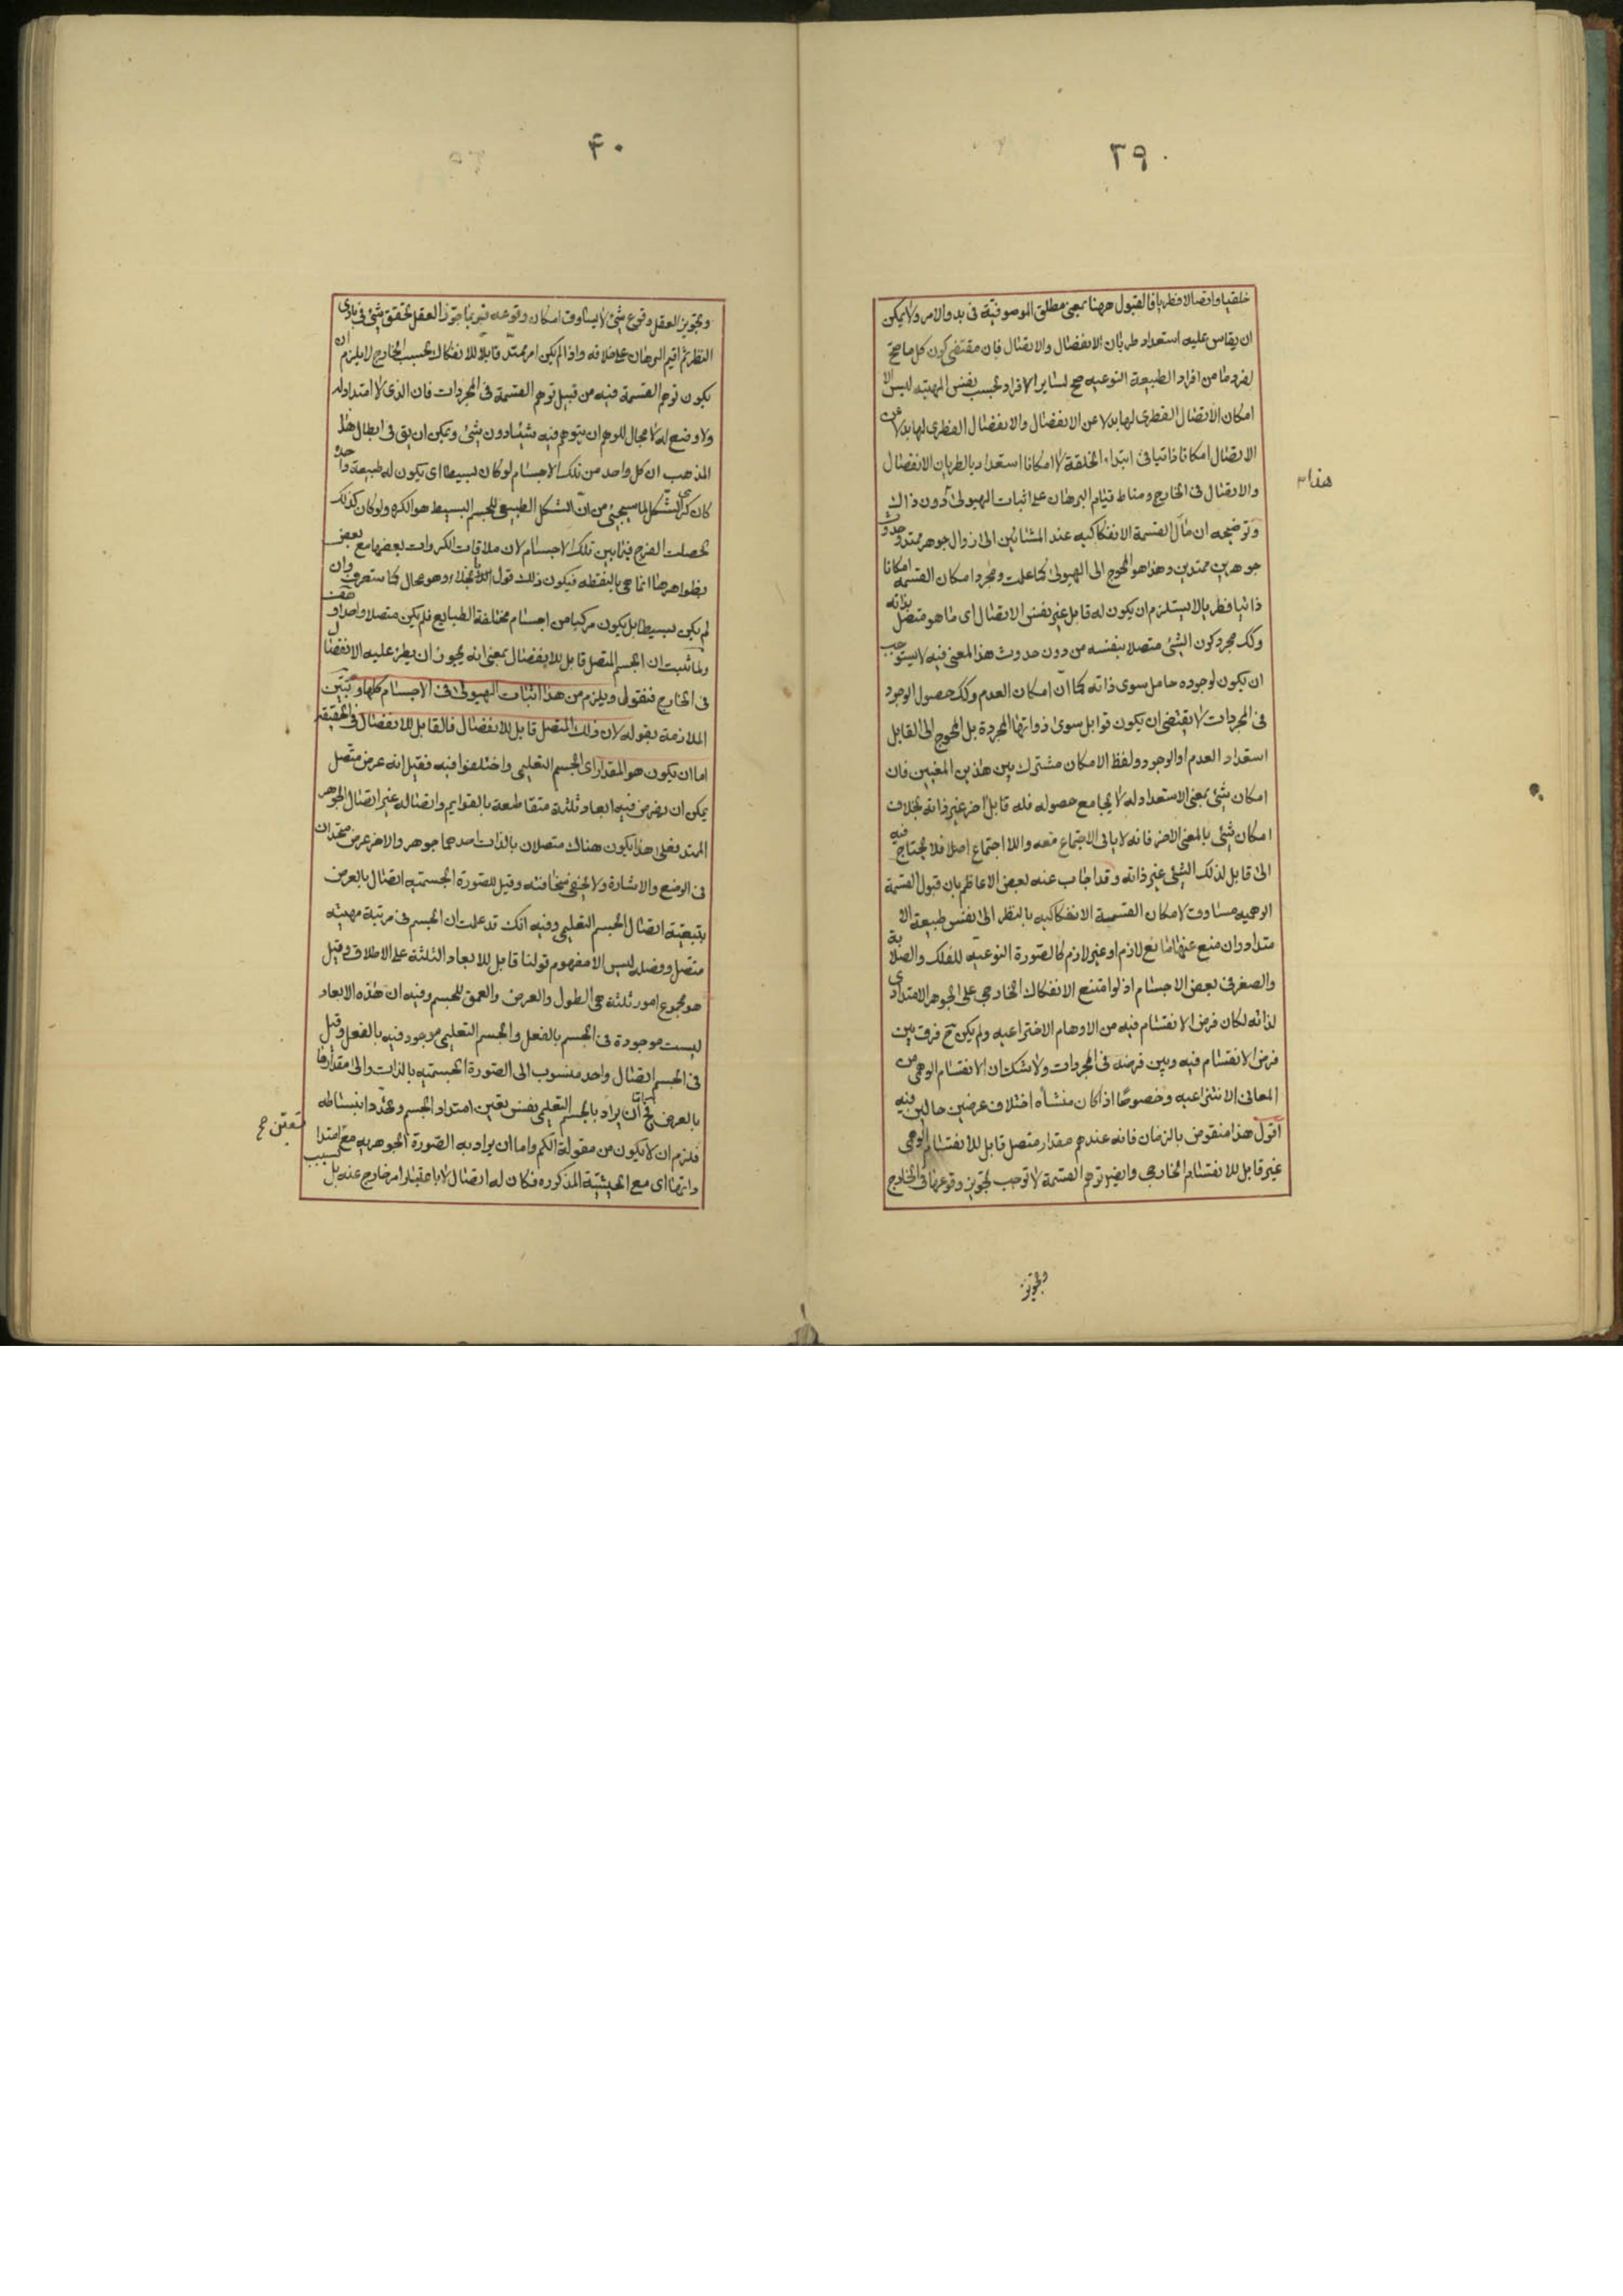 ٣٩
خلقيا واتصالا فطريا فالقبول ههنا بمعنى مطلق الموصوفية فى بدو الامر ولا يمكن
ان يقاس عليه استعداد طريان الانفصال والاتصال فان مقتضى كون كل ما صح
لفرد ما من افراد الطبيعة النوعيه صح لسائر الافراد بحسب نفس المهيته ليس الا
امكان الاتصال الفطرى لها بدلا عن الانفصال والانفصال الفطرى لها بدلا عن
الاتصال امكانا ذاتيا فى ابتداء الخلقة لا امكانا استعداديا لطريان الانفصال
هذا
والاتصال فى الخارج ومناط قيام البرهان على اثبات الهيولى دون ذاك
وتوضيحه ان مآل القسمة الانفكاكيه عند المشائين الى زوال جوهر ممتد وحدوث
جوهرين ممتدين وهذا هو المحوج الى الهيولى كما علمت ومجرد امكان القسمه امكانا
ذاتيا فطريا لا يستلزم ان يكون له قابل غير نفس الاتصال اى ما هو متصل بذاته
وكك مجرد كون الشئ متصلا بنفسه من دون حدوث هذا المعنى فيه لا يستوجب
ان يكون لوجوده حامل سوى ذاته كما انّ امكان العدم وكك حصول الوجود
فى المجردات لا يقتضى ان يكون قوابل سوى ذواتها المجردة بل المحوج الى القابل
استعداد العدم او الوجود ولفظ الامكان مشترك بين هذين المعنيين فان
امكان شئ بمعنى الاستعداد له لا يجامع حصوله فله قابل آخر غير ذاته بخلاف
امكان شئ بالمعنى الاخر فانه لا يابى الاجتماع معه واللا اجتماع اصلا فلا يحتاج فيه
الى قابل لذلك الشئ غير ذاته وقد اجاب عنه بعض الاعاظم بان قبول القسمة
الوهيه مساوق لامكان القسمة الانفكاكيه بالنظر الى نفس طبيعة الا
متداد وان منع عنها مانع لازم او غير لازم كالصورة النوعيه للفلك والصلابة
والصغر فى بعض الاجسام اذ لو امتنع الانفكاك الخارجى على الجوهر الامتدادى
لذاته لكان فرض الانقسام فيه من الاوهام الاختراعيه ولم يكن ح فرق بين
فرض الانقسام فيه وبين فرضه فى المجردات ولا شك ان الانقسام الوهمى من
المعانى الانتزاعيه وخصوصًا اذا كان منشأه اختلاف عرضين حالين فيه
اقول هذا منقوض بالزمان فانه عندهم مقدار متصل قابل للانقسام الوهمى
غير قابل للانقسام الخارجى وايضا توهم القسمة لا توجب تجويز وقوعها فى الخارج
وتجويز
٤٠
وتجويز العقل وقوع شئ لا يساوق امكان وقوعه فربما جوّز العقل تحقق شئ فى بادى
النظر ثم اقيم البرهان على خلافه واذا لم يكن امر ممتدّ قابلا للانفكاك بحسب الخارج لا يلزم ان
يكون توهم القسمة فيه من قبيل توهم القسمة فى المجردات فان الذى لا امتداد له
ولا وضع له لا مجال للوهم ان يتوهم فيه شيئا دون شئ ويمكن ان يق فى ابطال هذا
المذهب ان كل واحد من تلك الاجسام لو كان بسيطا اى يكون له طبيعة واحدة
كان كرى الشكل لما سيجئ من انّ الشكل الطبيعى للجسم البسيط هو الكره ولو كان كذلك
لحصلت الفرج فيما بين تلك الاجسام لان ملاقات الكروات بعضها مع بعض
بظواهرها انما هى بالنقطه فيكون ذلك قول بالخلاء وهو محال كما ستعرف وان
لم يكن بسيطا بل يكون مركبا من اجسام مختلفة الطبايع فلم يكن متصلا واحدا هف
ولما ثبت ان الجسم المتصل قابل للانفصال بمعنى انه يجوز ان يطرء عليه الانفصال
فى الخارج فنقول ويلزم من هذا اثبات الهيولى فى الاجسام كلها وبيّن
الملازمة بقوله لان ذلك المتصل قابل للانفصال فالقابل للانفصال فى الحقيقه
اما ان يكون هو المقدار اى الجسم التعليمى واختلفوا فيه فقيل انه عرض متصل
يمكن ان يفرض فيه ابعاد ثلثة متقاطعة بالقوايم واتصاله غير اتصال الجوهر
الممتد فعلى هذا يكون هناك متصلان بالذات احدهما جوهر والاخر عرض متحدان
فى الوضع والاشارة ولا يخفى سخافته وقيل للصورة الجسميه اتصال بالعرض
بتبعية اتصال الجسم التعليمى وفيه انك قد علمت ان الجسم فى مرتبة مهيته
متصل وفصله ليس الا مفهوم قولنا قابل للابعاد الثلثة على الاطلاق وقيل
هو مجموع امور ثلثة هى الطول والعرض والعمق للجسم وفيه ان هذه الابعاد
ليست موجودة فى الجسم بالفعل والجسم التعليمى موجود فيه بالفعل وقيل
فى الجسم اتصال واحد منسوب الى الصورة الجسميه بالذات والى مقدارها
بالعرض فح اما ان يراد بالجسم التعليمى نفس تعين امتداد الجسم وتحدد انبساطه
فلزم ان لا يكون من مقولة الكم واما ان يراد به الصورة الجوهريه مع امتدا
داتها اى مع الحيثيّة المذكوره فكان له اتصال لا باعتبار امر خارج عنه بل بسبب